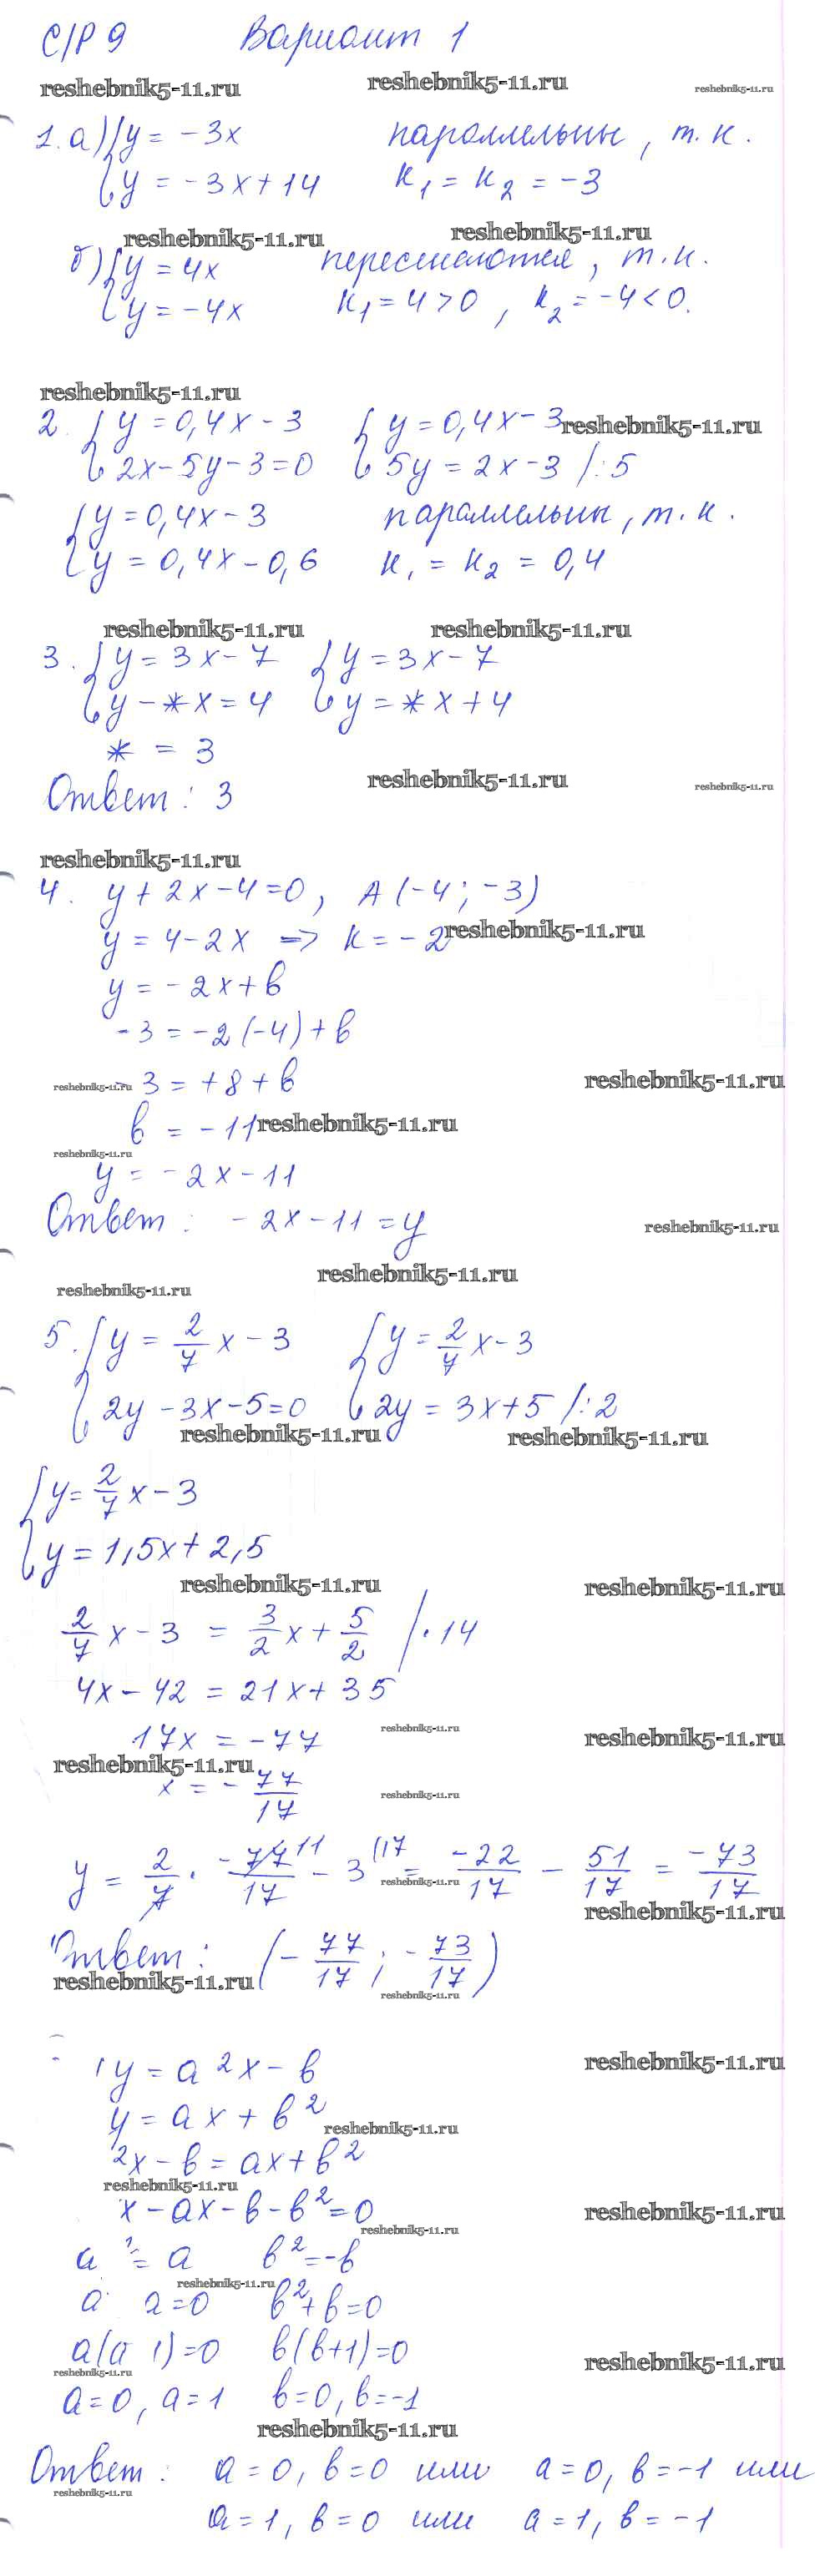 С/Р 9 Вариант 1
reshebnik5-11.ru reshebnik5-11.ru reshebnik5-11.ru
1. а) { y = -3x параллельны, т.к.
y = -3x + 14 k₁ = k₂ = -3
reshebnik5-11.ru reshebnik5-11.ru
б) { y = 4x пересекаются, т.к.
y = -4x k₁ = 4 > 0, k₂ = -4 < 0.
reshebnik5-11.ru
2. { y = 0,4x - 3 { y = 0,4x - 3 reshebnik5-11.ru
2x - 5y - 3 = 0 5y = 2x - 3 /:5
{ y = 0,4x - 3 параллельны, т.к.
y = 0,4x - 0,6 k₁ = k₂ = 0,4
reshebnik5-11.ru reshebnik5-11.ru
3. { y = 3x - 7 { y = 3x - 7
y - *x = 4 y = *x + 4
* = 3
Ответ: 3 reshebnik5-11.ru reshebnik5-11.ru
reshebnik5-11.ru
4. y + 2x - 4 = 0, A(-4; -3)
y = 4 - 2x => k = -2 reshebnik5-11.ru
y = -2x + b
-3 = -2(-4) + b
reshebnik5-11.ru -3 = +8 + b reshebnik5-11.ru
b = -11 reshebnik5-11.ru
reshebnik5-11.ru
y = -2x - 11
Ответ: -2x - 11 = y reshebnik5-11.ru
reshebnik5-11.ru
reshebnik5-11.ru
5. { y = 2/7 x - 3 { y = 2/7 x - 3
2y - 3x - 5 = 0 2y = 3x + 5 /:2
reshebnik5-11.ru reshebnik5-11.ru
{ y = 2/7 x - 3
y = 1,5x + 2,5
reshebnik5-11.ru reshebnik5-11.ru
2/7 x - 3 = 3/2 x + 5/2 /·14
4x - 42 = 21x + 35
17x = -77 reshebnik5-11.ru reshebnik5-11.ru
reshebnik5-11.ru
x = -77/17 reshebnik5-11.ru
y = 2/7 · -77 11/17 - 3 (17 = -22/17 - 51/17 = -73/17
reshebnik5-11.ru
reshebnik5-11.ru
Ответ: (-77/17; -73/17)
reshebnik5-11.ru reshebnik5-11.ru
y = a²x - b reshebnik5-11.ru
y = ax + b²
reshebnik5-11.ru
²x - b = ax + b²
reshebnik5-11.ru
x - ax - b - b² = 0 reshebnik5-11.ru
reshebnik5-11.ru
a² = a b² = -b
reshebnik5-11.ru
a a = 0 b² + b = 0
a(a 1) = 0 b(b+1) = 0 reshebnik5-11.ru
reshebnik5-11.ru
a = 0, a = 1 b = 0, b = -1
reshebnik5-11.ru
Ответ: a = 0, b = 0 или a = 0, b = -1 или
reshebnik5-11.ru
a = 1, b = 0 или a = 1, b = -1